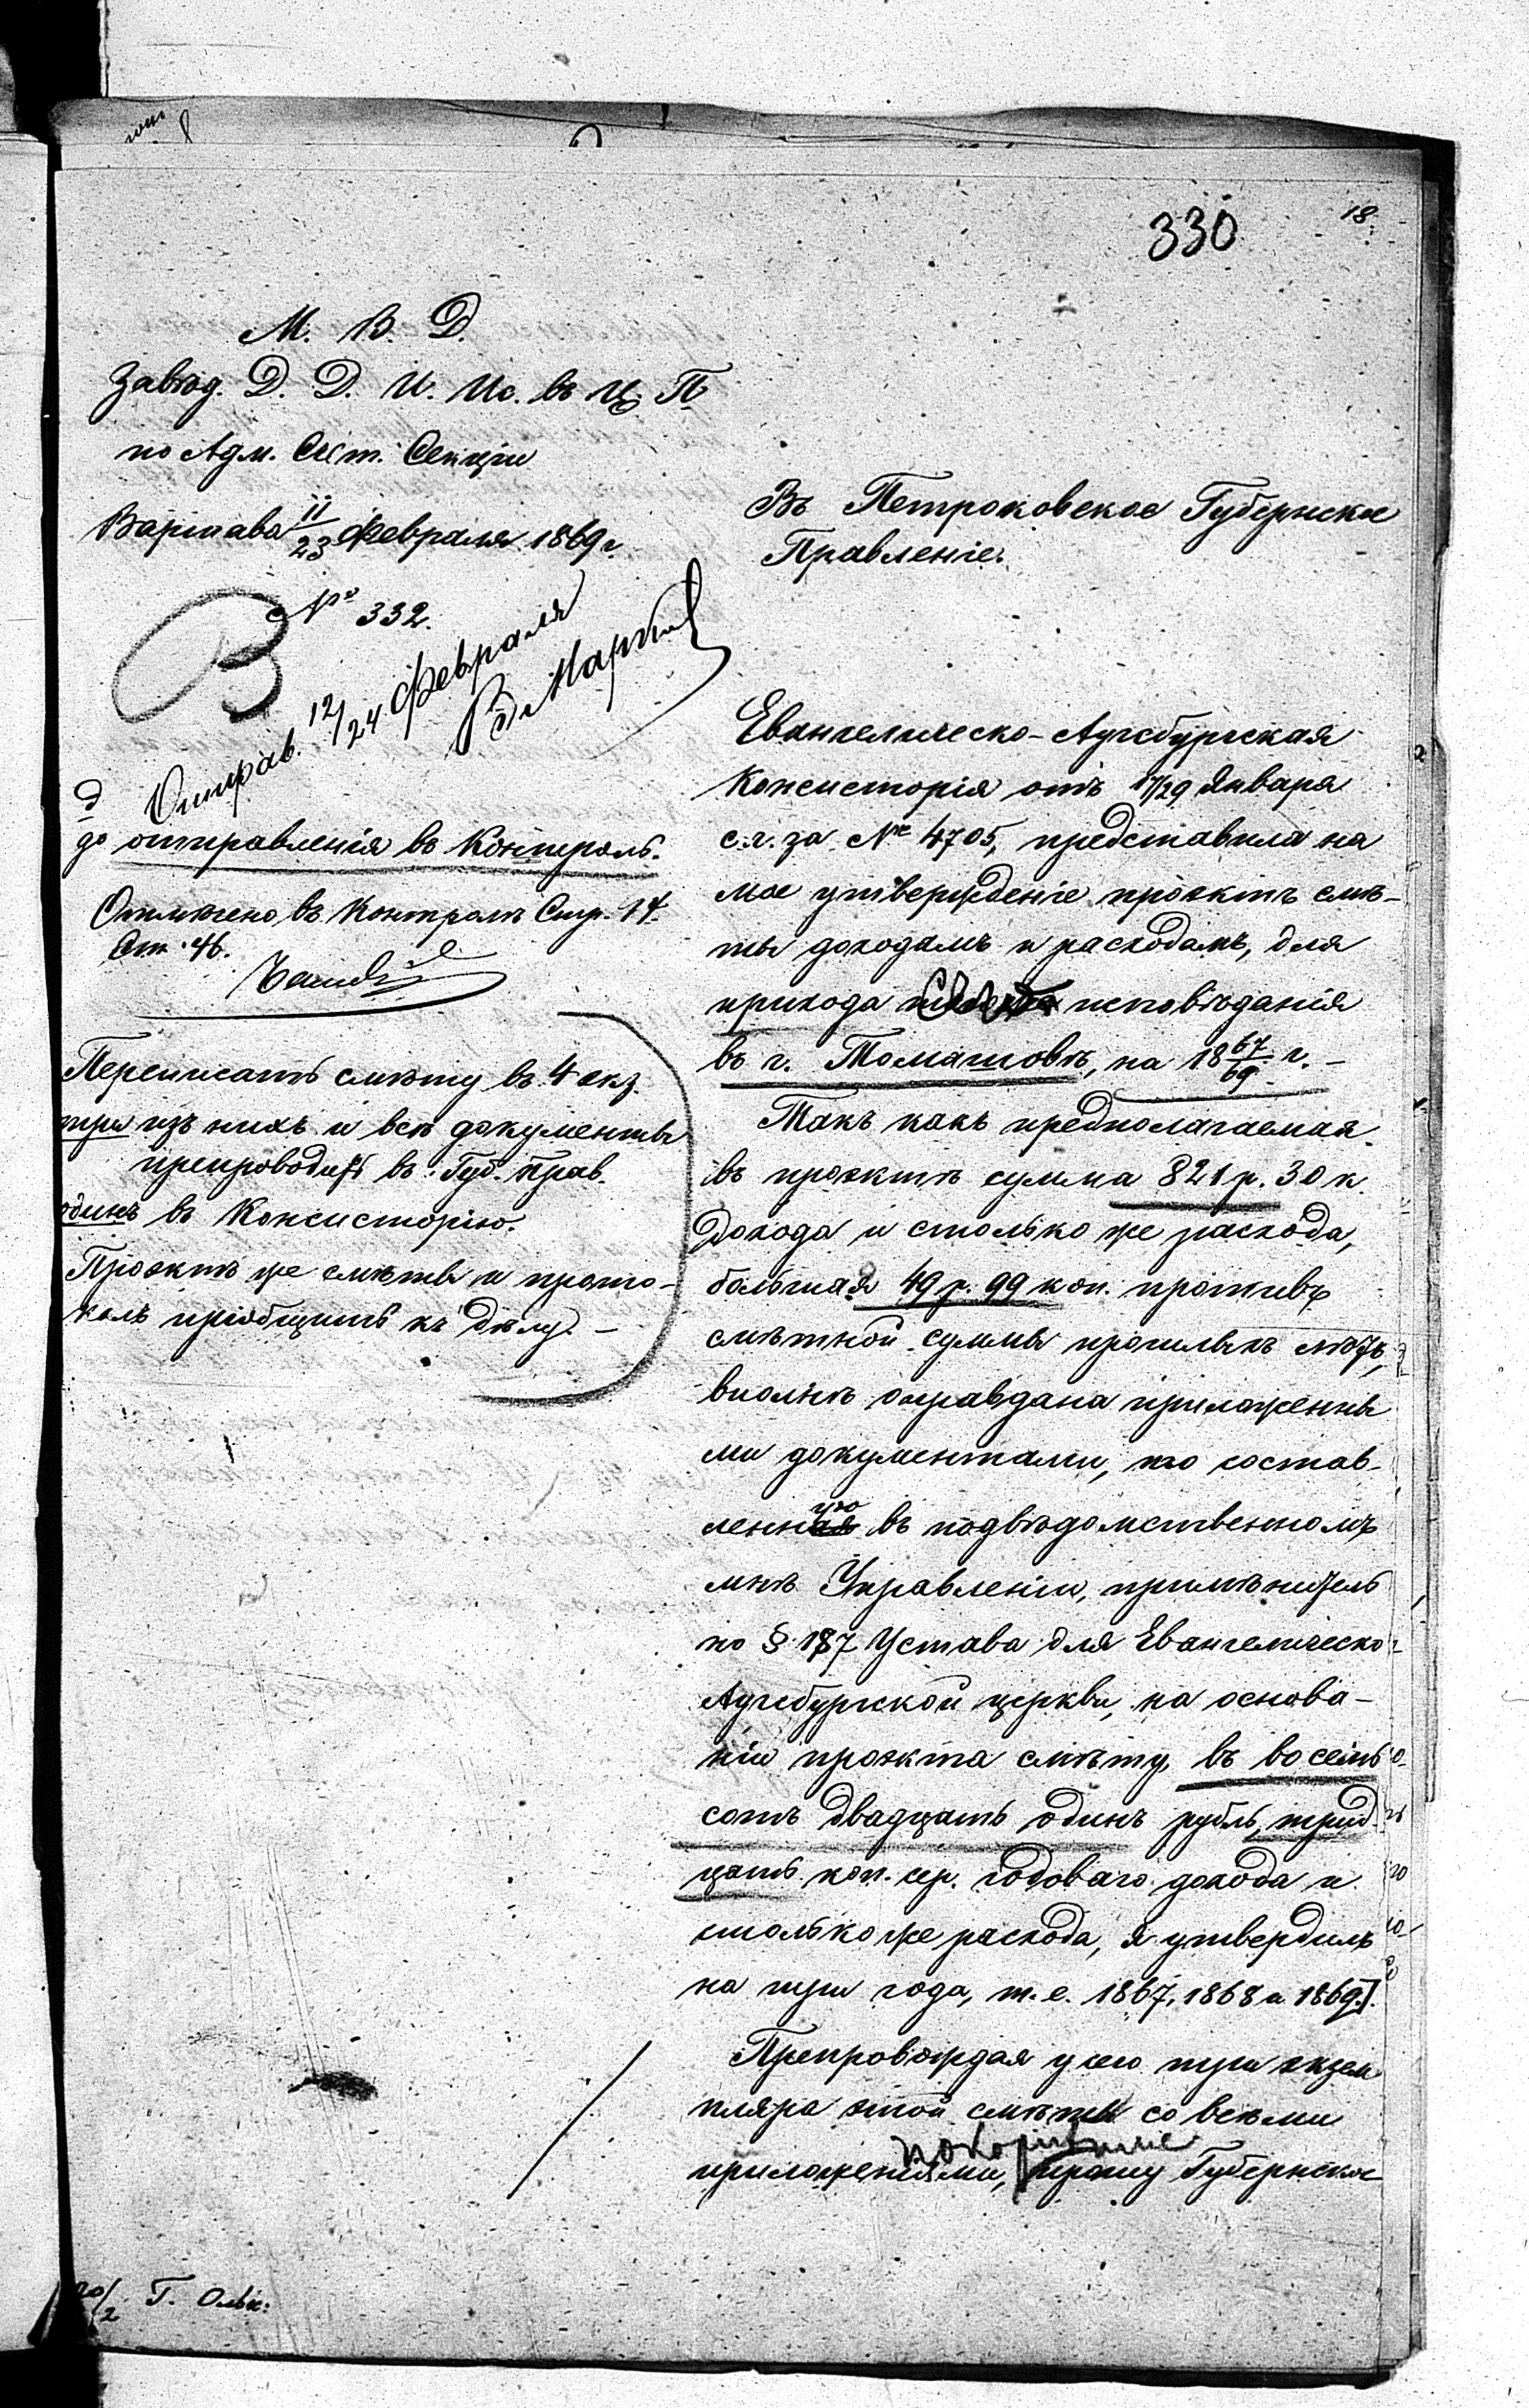 330
18
М. В. Д.
Завѣд. Д. Д. И. Ис. въ Ц. П.
по Адм. Счт. Секціи
Варшава 11/23 Февраля 1869 г.
№ 332.
В
Отправ. 12/24 Февраля
до отправленія въ Контроль.
Отмѣчено въ Контроль Стр. 14.
Ст. 46.
Переписать смѣту въ 4 экз.
три изъ нихъ и всѣ документы
препроводить въ Губ. Прав.
одинъ въ Консисторію.
Проэктъ же смѣты и прото-
колъ пріобщить къ дѣлу. –
Въ Петроковское Губернское
Правленіе.
Евангелическо-Аугсбургская
Консисторія отъ 17/29 Января
с.г. за № 4705, представила на
мое утвержденіе проэктъ смѣ-
ты доходамъ и расходамъ, для
прихода исповѣданія
въ г. Томашовѣ, на 18 67/69 г. –
Такъ какъ предполагаемая
въ проэктѣ сумма 821 р. 30 к.
дохода и столько же расхода,
большая 49 р. 99 коп. противъ
смѣтной суммы прошлыхъ лѣтъ,
вполнѣ оправдана приложенны
ми документами, то состав-
ленную въ подвѣдомственномъ
мнѣ Управленіи, примѣнитель
но § 187 Устава для Евангелическо-
Аугсбургской церкви, на основа-
ніи проэкта смѣту, въ восемь
сотъ двадцать одинъ рубль, трид-
цать коп. сер. годоваго дохода и
столько же расхода, я утвердилъ
на три года, т.е. 1867, 1868 и 1869].
Препровождая у сего три экзем
пляра этой смѣты со всѣми
покорнѣйше
приложеніями, прошу Губернское
20/2 Г. Ольх: